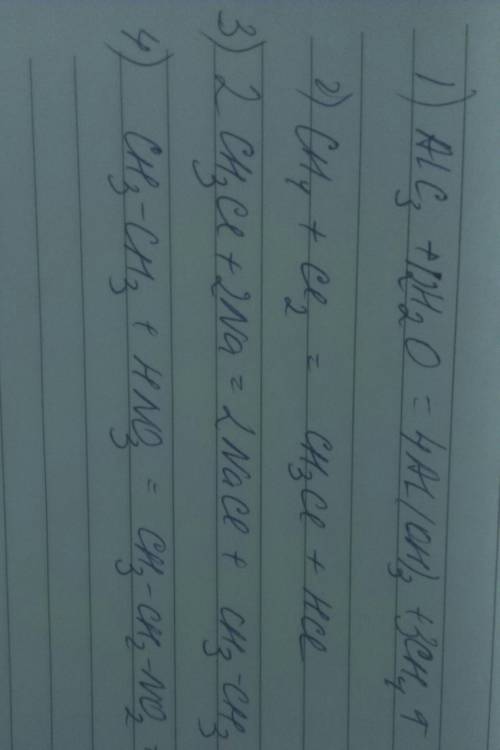 1) AlC₃ + 12H₂O = 4Al(OH)₃ + 3CH₄ ↑
2) CH₄ + Cl₂ = CH₃Cl + HCl
3) 2 CH₃Cl + 2Na = 2NaCl + CH₃-CH₃
4) CH₃-CH₃ + HNO₃ = CH₃-CH₂-NO₂